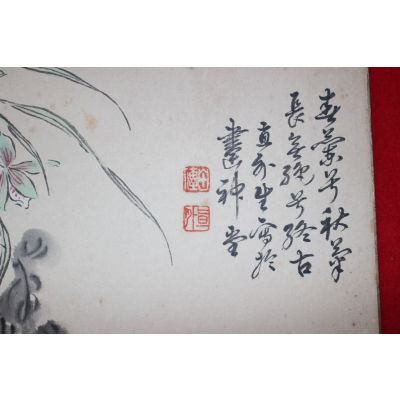 春蘭兮秋菊
長無絶兮終古
直外生寫於
畫神堂